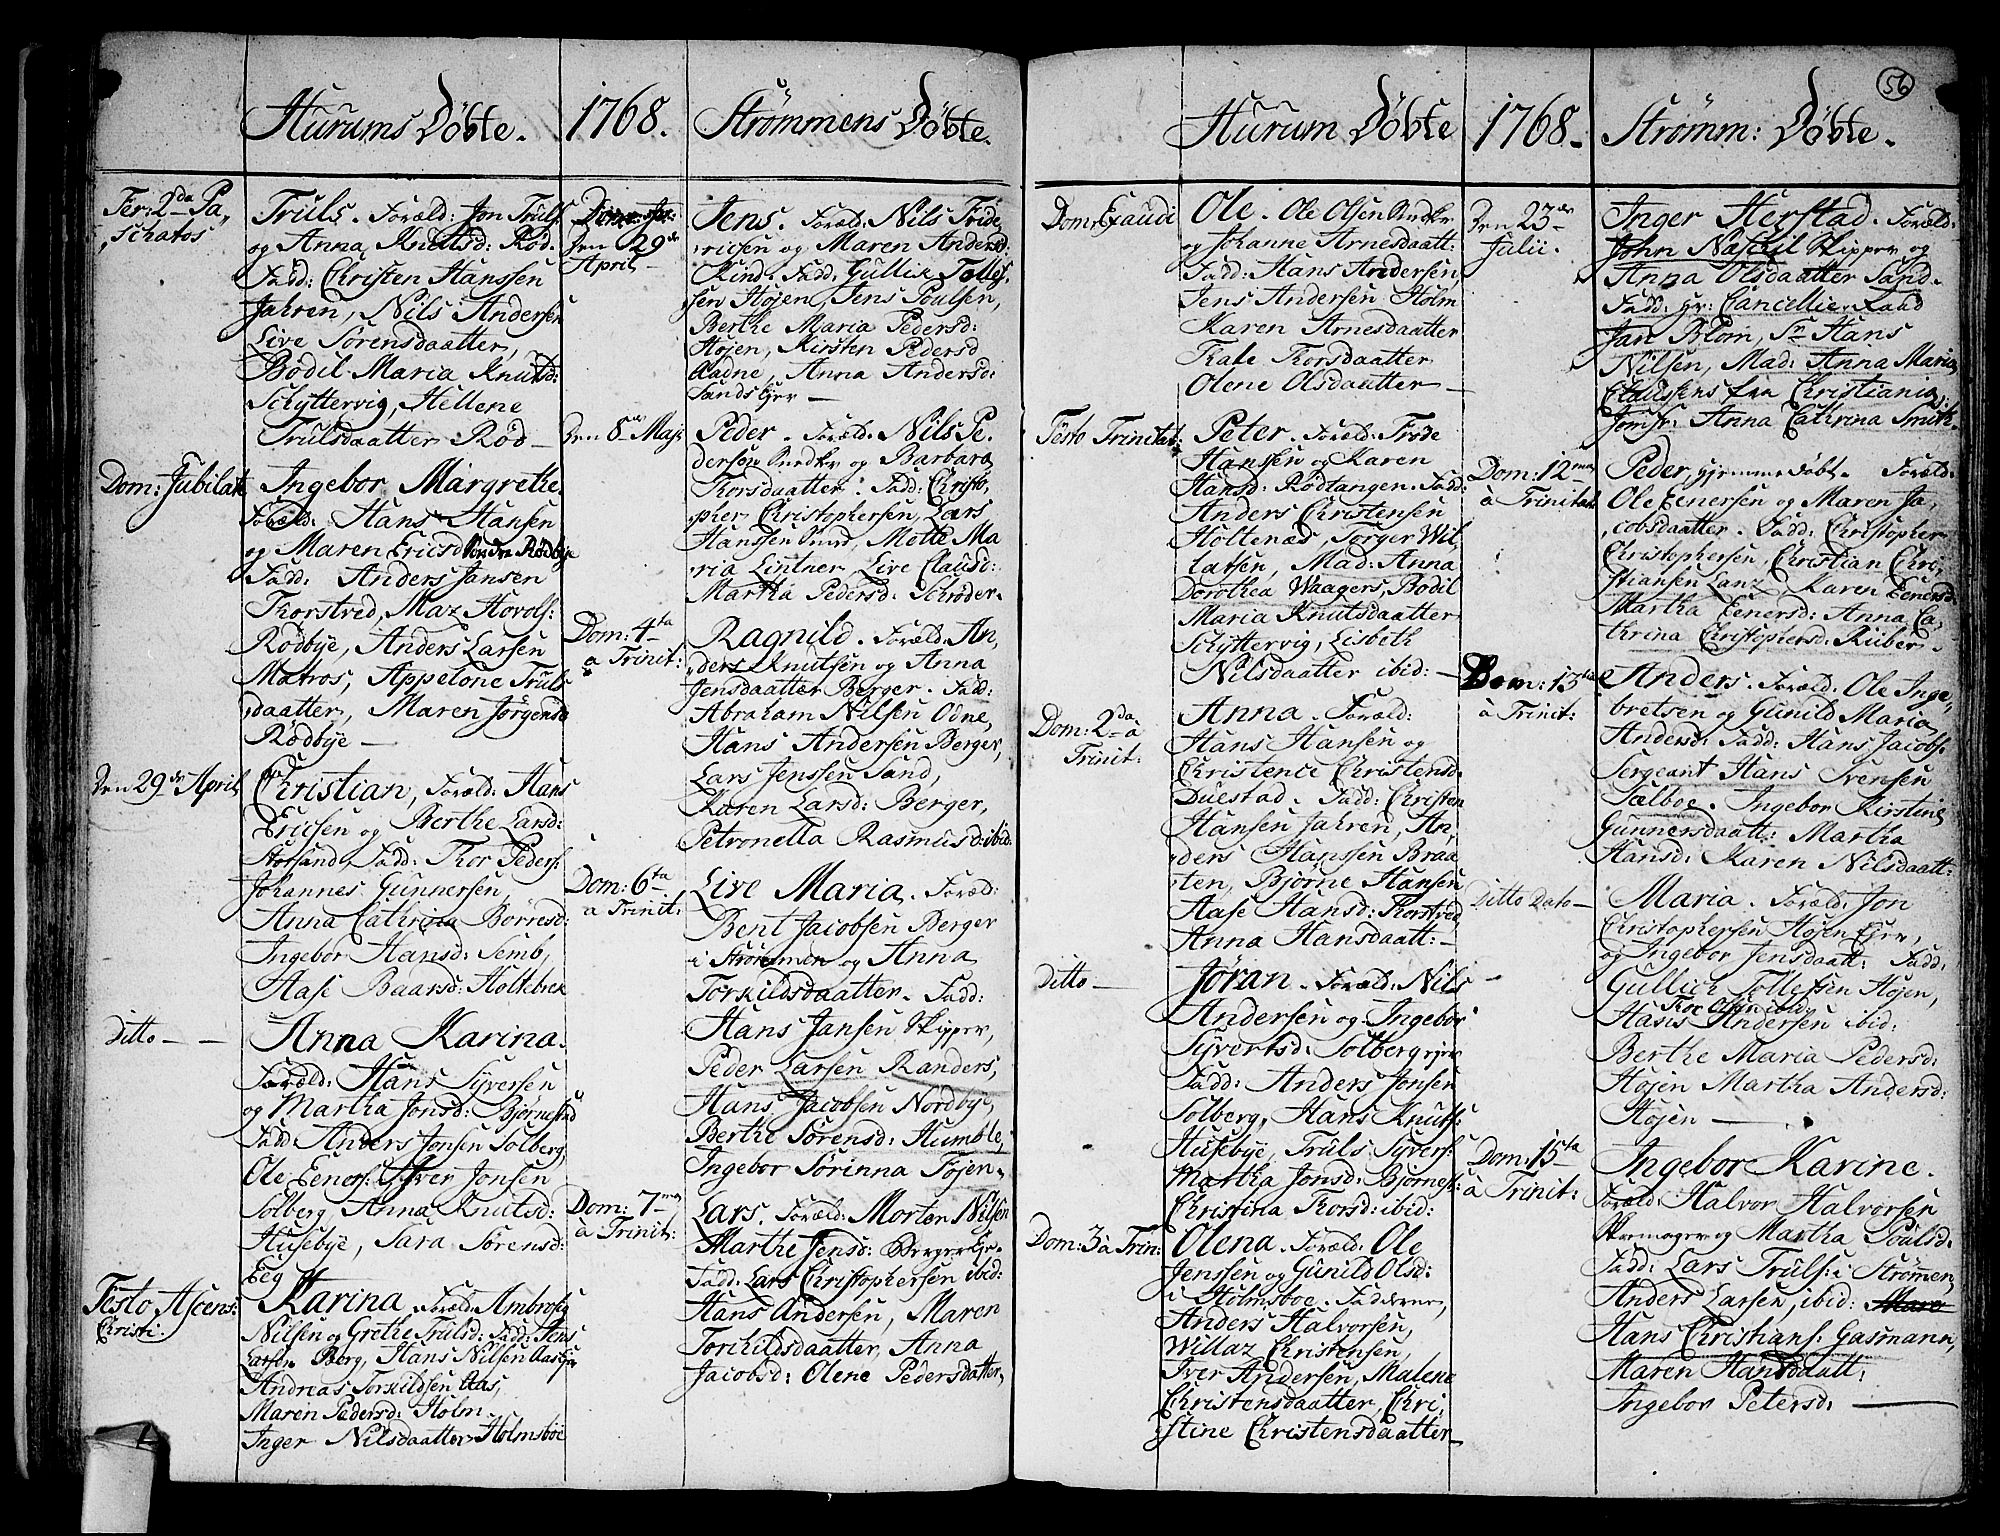 56
Hurums Döbte.
1768.
Strömmens Döbte.
Fer: 2da Pa,
schatos
Truls. Foræld: Jon Truls
og Anna Knutsd: Röd
Fadd: Christen Hanssen
Jahren, Nils Andersen
Live Sörensdaatter,
Bodil Maria Knutsd:
Schÿttervig, Hellene
Trulsdaatter Röd
Dom: Jubilate
Ingebor Margrethe.
Foræld: Hans Hansen
og Maren Ericsd: Söndre Rödbye
Fadd: Anders Jansen
Thorstved, Maz Hovols:
Rödbÿe, Anders Larsen
Matros, Appelone Truls
daatter, Maren Jörgensd
Rödbÿe
Den 29de April
Christian, Foræld: Hans
Ericsen og Berthe Larsd:
Storsand, Fadd: Thor Peders:
Johannes Gunnersen,
Anna Cathrina Börresd:
Ingebor Hansd: Semb,
Aase Baarsd: Holtebrek
Ditto
Anna Karina.
Foræld: Hans Sÿversen
og Martha Jonsd: Björnestad
Fadd: Anders Jonsen Solberg,
Ole Eeners: Sÿver Jonsen
Solberg, Anna Knutsd:
Husebÿe, Sara Sörensd:
Eeg
Festo Ascens:
Christi.
Karina, Foræld: Ambrosius
Nilsen og Grethe Trulsd: Fadd: Jens
Larsen Berg, Hans Nilsen
Andreas Torkildsen Aas,
Maren Pedersd: Holm
Inger Nilsdaatter Holmsboe
den 29de
April
Jens. Foræld: Nils Fride,
ricsen og Maren Andersd:
Rind. Fadd: Gullik Tolles,
sen Höjen, Jens Poulsen,
Berthe Maria Pedersd:
Höjen, Kirsten Pedersd
Aadne, Anna Andersd:
Sands Ejer
den 8de Maj
Peder. Foræld: Nils Pe,
dersen og Barbara
Thorsdaatter. Fadd: Christo,
pher Christophersen, Lars
Hanssen Sund, Motte Ma
ria Lintner, Live Clausd:
Martha Pedersd: Schröder
Dom: 4ta
a Trinit:
Ragnild. Foræld: An,
ders Knutsen og Anna
Jensdaatter Berger. Fadd:
Abraham Nilsen Odne,
Hans Andersen Berger,
Lars Jenssen Sand,
Karen Larsd: Berger,
Petronella Rasmusd: ibid:
Dom: 6ta
a Trinit:
Live Maria. Foræld:
Bent Jacobsen Berger
i Strömmen og Anna
Torkildsdaatter. Fadd:
Hans Jansen Skipper,
Peder Larsen Randers,
Hans Jacobsen Nordbÿe,
Berthe Sörensd: Humble,
Ingebor Sörinna Töjen
Dom: 7ma
à Trinit:
Lars. Foræld: Morten Nilsen
Marthe Jensd: Berger Eje
Fadd: Lars Christophersen ibid:
Hans Andersen, Maren
Torchildsdaatter, Anna
Jacobsd: Olene Pedersdatter,
Hurum Döbte
1768.
Strömm: Döbte.
Dom: Exaudi
Ole. Ole Olsen
og Johanne Arnesdaatt:
Fadd: Hans Andersen,
Jens Andersen Holm
Karen Arnesdaatter
Kate Thorsdaatter
Olene Olsdaatter
Festo Trinitat:
Peter. Foræld: Frode
Hanssen og Karen
Hansd: Rödtangen. Fadd:
Anders Christensen
Holtenæs, Torger Wil,
latsen, Mad: Anna
Dorothea Waagers, Bodil
Maria Knutsdaatter
Schÿttervig, Lisbeth
Nilsdaatter ibid:
Dom: 2da à
Trinit:
Anna. Foræld:
Hans Hansen og
Christence Christensd.
Duestad. Fadd: Christen
Hansen Jahren, An,
ders Hanssen Braa
ten, Björne Hansen
Aase Hansd: Thorstved,
Anna Hansdaatt:
Ditto
Jöran. Foræld: Nils
Andersen og Ingebor
Sÿvertsd: Solberg ejer
Fadd: Anders Jonsen
Solberg, Hans Knuts:
Husebÿe, Truls Sÿvers:
Martha Jonsd: Björnest:
Christina Thorsd: ibid:
Dom: 3 à Trin:
Olena. Foræld: Ole
Jenssen og Gunild Olsd:
i Holmsboe. Fadderne,
Anders Halvorsen,
Willaz Christensen,
Iver Andersen, Malene
Christensdaatter, Chri,
stine Christensdaatter
Den 23de
Julii.
Inger Herstad. Foræld:
John Naschil Skipper og
Anna Olsdaatter Sand.
Fadd: Hr: Cancellie Raad
Jan Blom, Sr Hans
Nilsen, Mad: Anna Maria
Claussens fra Christiania,
Jomfr: Anna Cathrina Smith.
Dom: 12ma
à Trinitat:
Peder, hjemme Döbt. Foræld:
Ole Eenersen og Maren Ja,
cobsdaatter. Fadd: Christopher
Christophersen, Christian Chri,
stiansen Lanz, Karen Eenersd.
Martha Eenersd: Anna Ca,
thrina Christophersd: Ruber
Dom: 13tia
à Trinit:
Anders. Foræld: Ole Inge,
bretsen og Gunild Maria
Andersd: Fadd: Hans Jacobs:
Sergeant Hans Svensen
Sælboe. Ingebor Kirstine
Gunnersdaatt: Martha
Hansd: Karen Nilsdaatt:
Ditto Dato
Maria. Foræld: Jon
Christophersen Höjen Ejer,
og Ingebor Jensdaatt: Fadd:
Gullich Tollefsen Höjen,
Thor Olsen ibid:
Hans Andersen ibid:
Berthe Maria Pedersd:
Höjen Martha Andersd:
Höjen
Dom: 15ta
à Trinit:
Ingebor Karine.
Foræld: Halvor Halvorsen
Skemager og Martha Poulsd.
Fadd: Lars Truls: i Strömen,
Anders Larsen, ibid:
Hans Christians: Gasmann,
Maren Hansdaatt:
Ingebor Petersd: